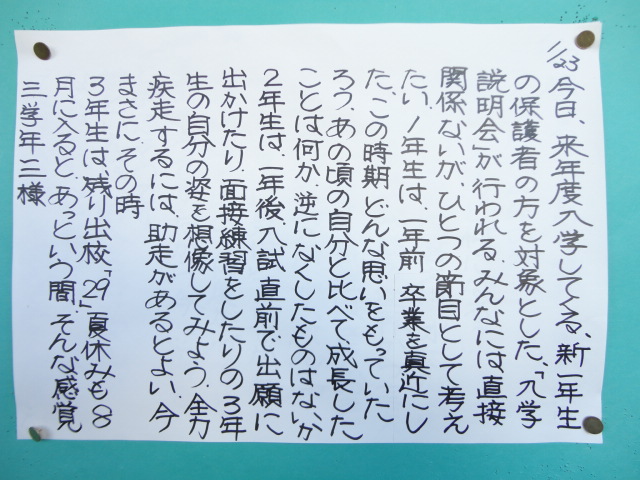 1/23 今日、来年度入学してくる、新一年生
の保護者の方を対象とした、「入学
説明会」が行われる。みんなには直接
関係ないが、ひとつの節目として考え
たい。1年生は、一年前 卒業を真近にし
た、この時期 どんな思いをもっていた
ろう、あの頃の自分と比べて、成長した
ことは何か、逆になくしたものはないか
2年生は、一年後、入試直前で出願に
出かけたり、面接練習をしたりの3年
生の自分の姿を想像してみよう。全力
疾走するには、助走があるとよい。今
まさに、その時
3年生は残り出校「29」夏休みも8
月に入ると、あっという間、そんな感覚
三学年三様